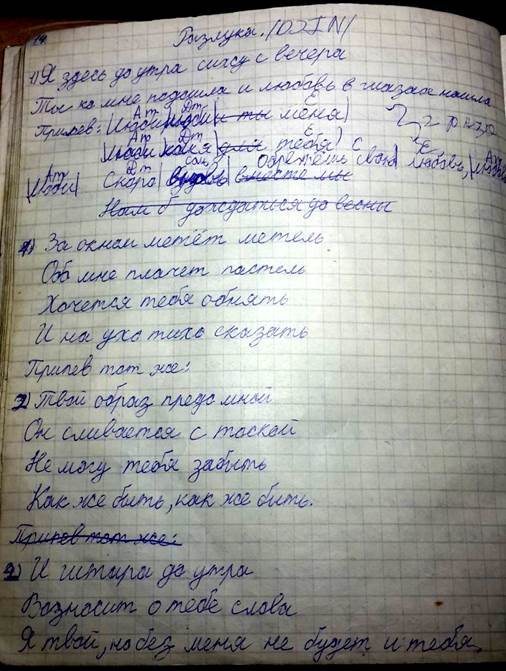 14
Разлука. /ОДIN/
1) Я здесь до утра сижу с вечера
Ты ко мне подошла и любовь в глазах нашла
Am Dm E
Припев: |Люби|люби|и ты меня| } 2 раза
Am Dm E
|Люби|как я|для тебя| с E Am
Am Dm соль
|Люби| скоро вместе мы обретешь свою любовь,
Нам б дождаться до весны
За окном метёт метель
Обо мне плачет пастель
Хочется тебя обнять
И на ухо тихо сказать
Припев тот же:
Твой образ предо мной
Он сливается с тоской
Не могу тебя забыть
Как же быть, как же быть.
Припев тот же:
И гитара до утра
Возносит о тебе слова
Я твой, но без меня не будет и тебя